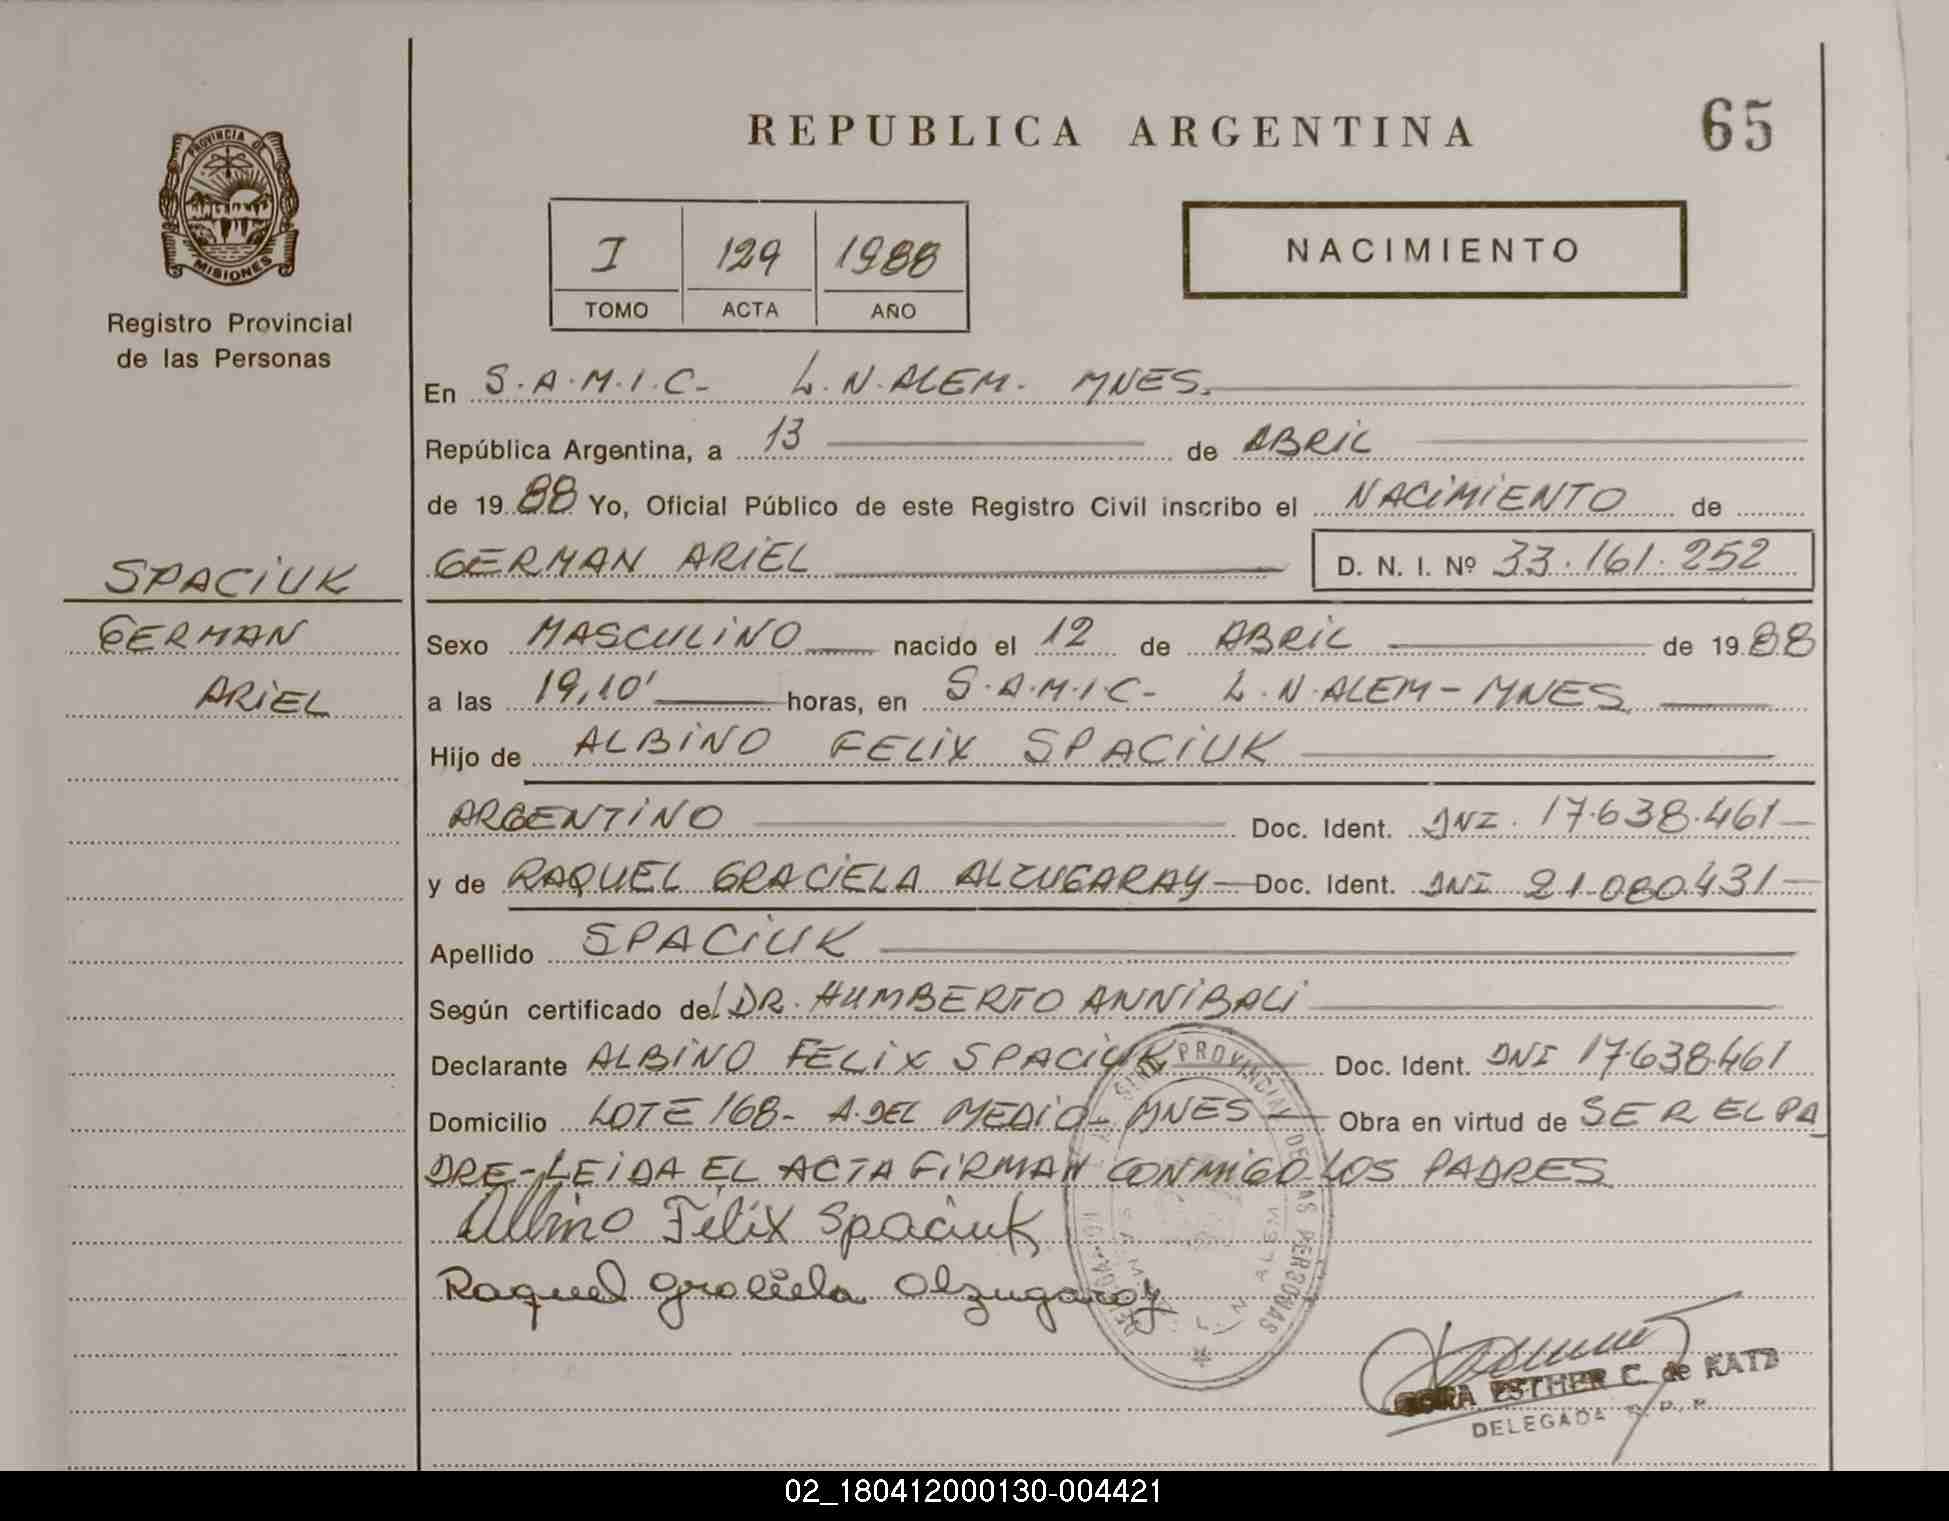 REPUBLICA ARGENTINA
65
PROVINCIA DE
MISIONES
Registro Provincial
de las Personas
I 129 1988
TOMO ACTA AÑO
NACIMIENTO
En S.A.M.I.C- L.N.ALEM. MNES.
República Argentina, a 13 de ABRIL
de 1988 Yo, Oficial Público de este Registro Civil inscribo el NACIMIENTO de
GERMAN ARIEL D. N. I. Nº 33.161.252
SPACIUK
GERMAN
ARIEL
Sexo MASCULINO nacido el 12 de ABRIL de 1988
a las 19,10' horas, en S.A.M.I.C- L.N.ALEM-MNES
Hijo de ALBINO FELIX SPACIUK
ARGENTINO Doc. Ident. DNI. 17.638.461-
y de RAQUEL GRACIELA ALZUGARAY- Doc. Ident. DNI 21.080.431-
Apellido SPACIUK
Según certificado del DR. HUMBERTO ANNIBALI
Declarante ALBINO FELIX SPACIUK Doc. Ident. DNI 17.638.461
Domicilio LOTE 168- A.DEL MEDIO- MNES- Obra en virtud de SER EL PA
DRE-LEIDA EL ACTA FIRMAN CONMIGO LOS PADRES
Albino Félix Spaciuk
Raquel Graciela Alzugaray
PROVINCIAL DE LAS PERSONAS
L. N. ALEM
ESTHER C. de KATZ
DELEGADA R. P. P.
02_180412000130-004421